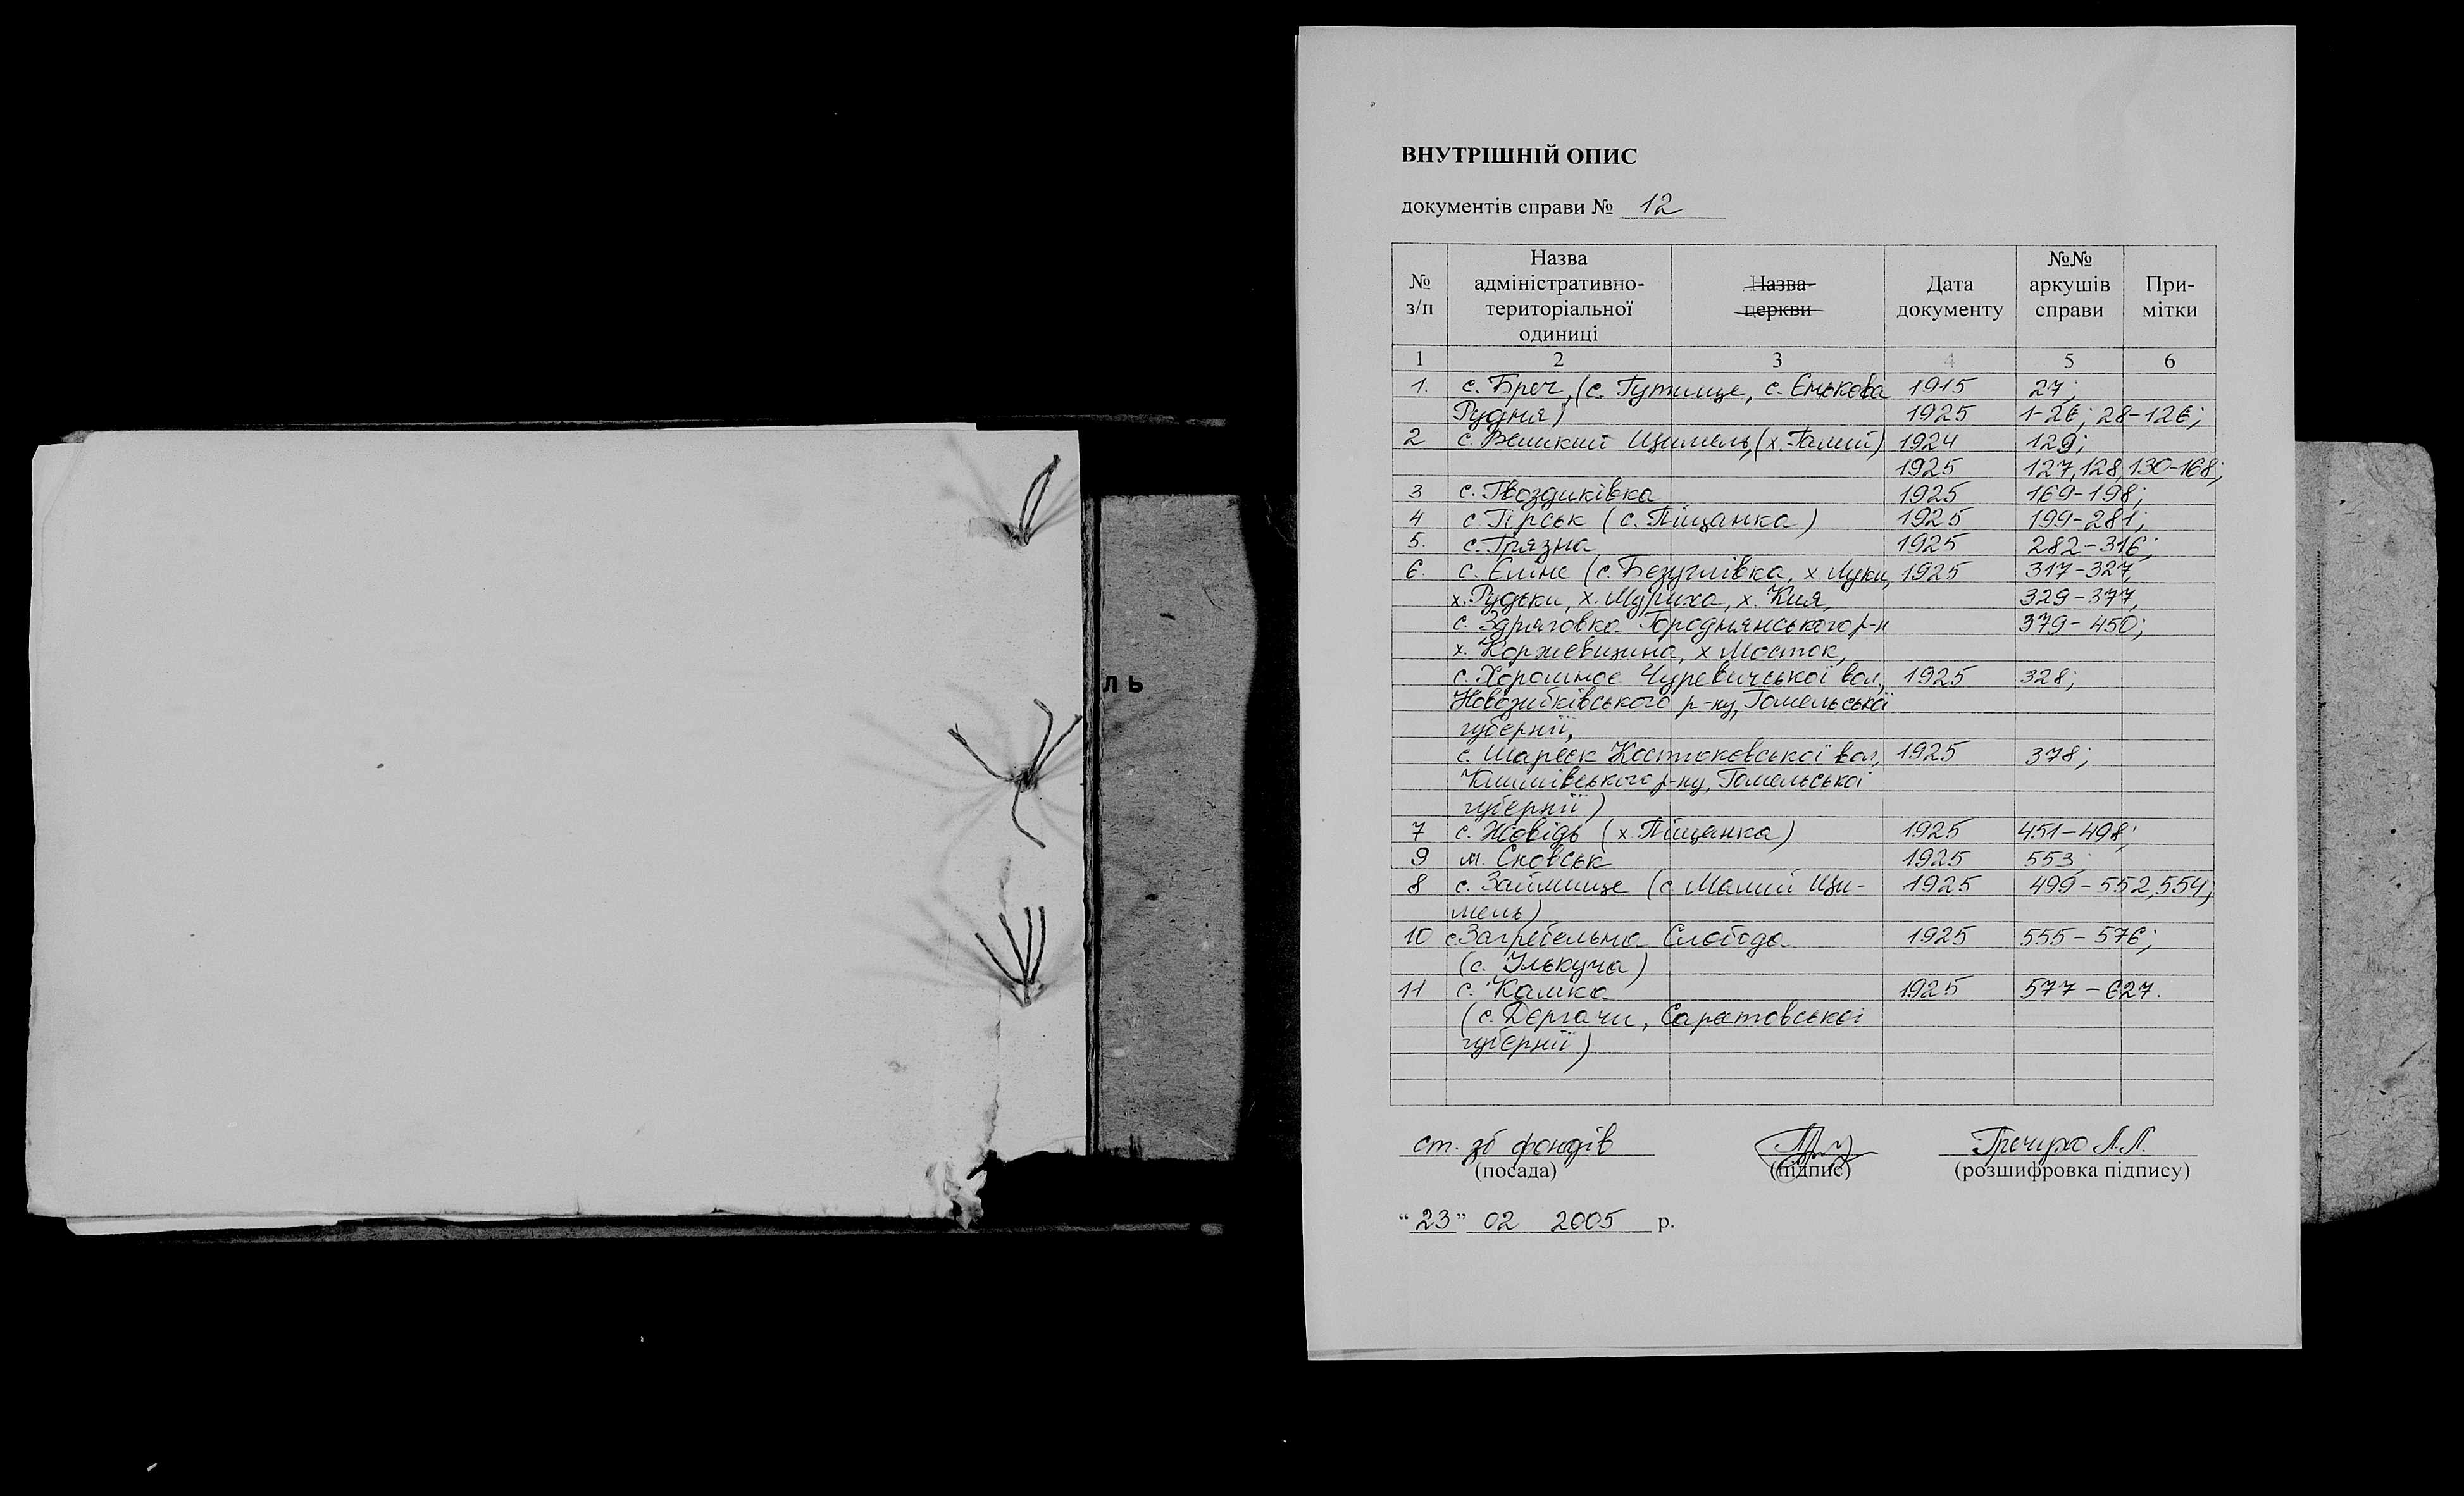 ЛЬ
ВНУТРІШНІЙ ОПИС
документів справи № 12
№ з/п
Назва адміністративно-територіальної одиниці
Назва церкви
Дата документу
№№ аркушів справи
Примітки
1 2 3 4 5 6
1. с. Бреч, (с. Гутище, с. Єнькова 1915 27;
Рудня) 1925 1-26; 28-126;
2 с. Великий Щимель, (х. Галий) 1924 129;
1925 127, 128, 130-168;
3 с. Гвоздиківка 1925 169-198;
4 с. Гірськ (с. Піщанка) 1925 199-281;
5. с. Грязна 1925 282-316;
6. с. Єліне (с. Безуглівка, х Луки, 1925 317-327,
х. Рудьки, х. Муриха, х. Кия, 329-377,
с. Здряговка Городнянського р-н 379-450;
х. Коржевщина, х Мосток,
с. Хоромноє Чуревичської вол., 1925 328;
Новозибківського р-ну, Гомельської
губернії,
с. Костюковської вол, 1925 378;
р-ну, Гомельської
губернії)
7 с. Жовідь (х. Піщанка) 1925 451-498;
9 м. Сновськ 1925 553
8 с. Займище (с Малий Щи- 1925 499-552, 554;
мель)
10 с. Загребельна Слобода 1925 555-576;
(с. Ількуча)
11 с. Камка 1925 577-627.
(с. Дергачи, Саратовської
губернії)
ст. зб фондів Гречухо Л.Л.
(посада) (підпис) (розшифровка підпису)
“23” 02 2005 р.